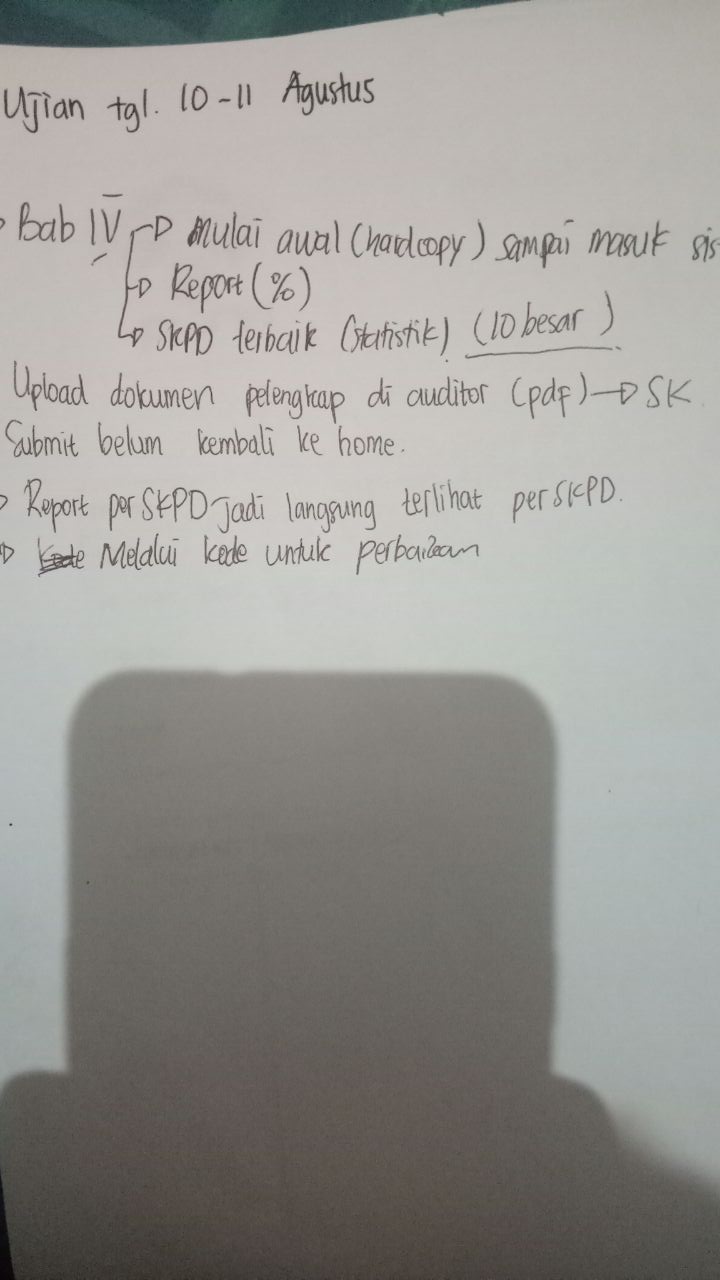 Ujian tgl. 10-11 Agustus
Bab IV → Mulai awal (hardcopy) sampai masuk sis
→ Report (%)
→ SKPD terbaik (statistik) (10 besar)
Upload dokumen pelengkap di auditor (pdf) → SK
Submit belum kembali ke home.
→ Report per SKPD jadi langsung terlihat per SKPD.
→ Melalui kode untuk perbaikan